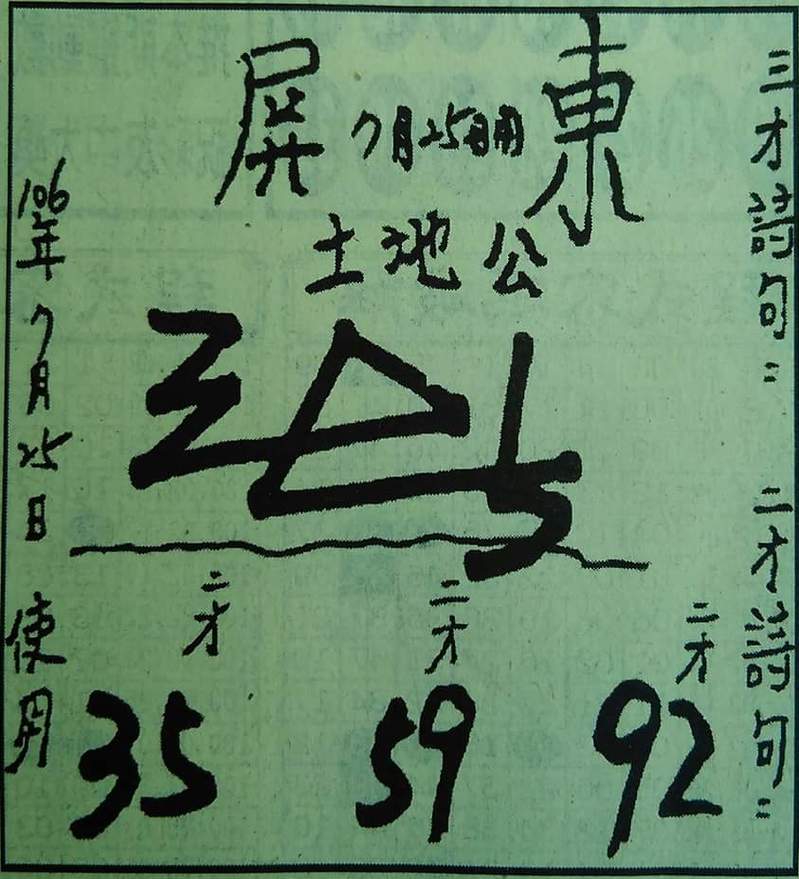 屏 7月25日用 東
土地公
三才詩句：
二才詩句：
106年7月25日 使用
二才 二才 二才
35 59 92